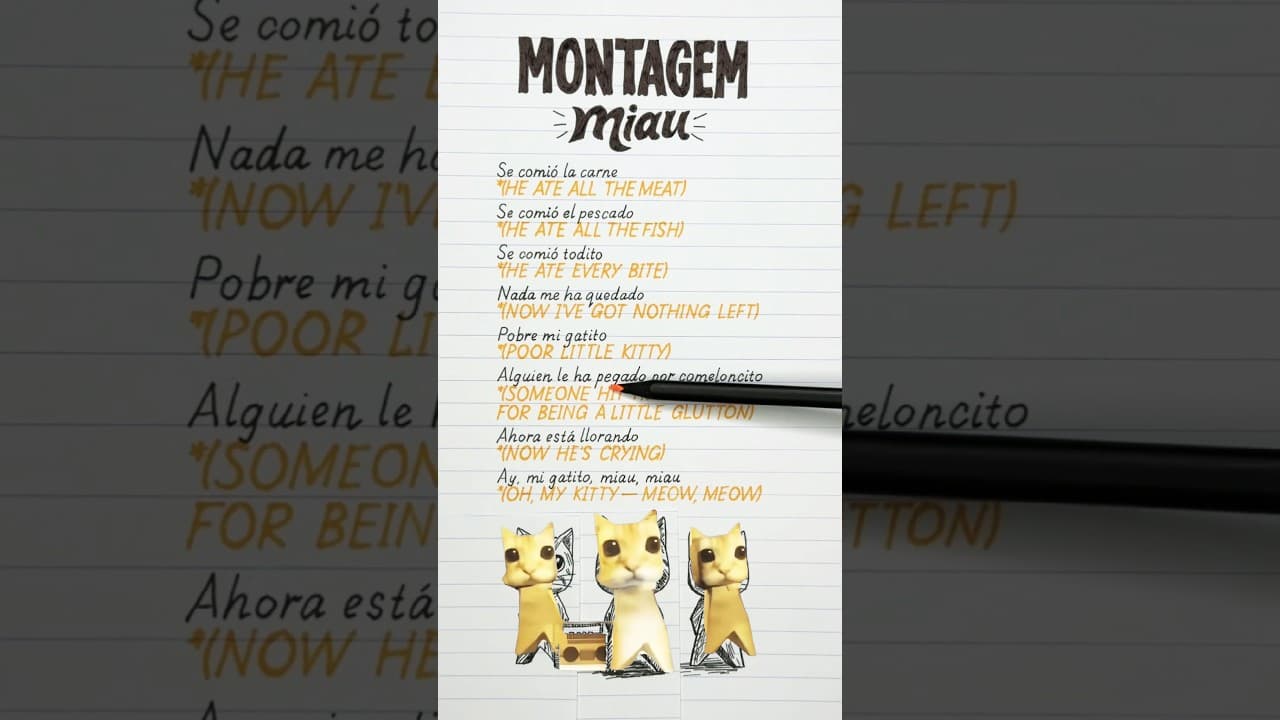 MONTAGEM
miau
Se comió la carne
*(HE ATE ALL THE MEAT)
Se comió el pescado
*(HE ATE ALL THE FISH)
Se comió todito
*(HE ATE EVERY BITE)
Nada me ha quedado
*(NOW I'VE GOT NOTHING LEFT)
Pobre mi gatito
*(POOR LITTLE KITTY)
Alguien le ha pegado por comeloncito
*(SOMEONE HIT
FOR BEING A LITTLE GLUTTON)
Ahora está llorando
*(NOW HE'S CRYING)
Ay, mi gatito, miau, miau
*(OH, MY KITTY — MEOW, MEOW)